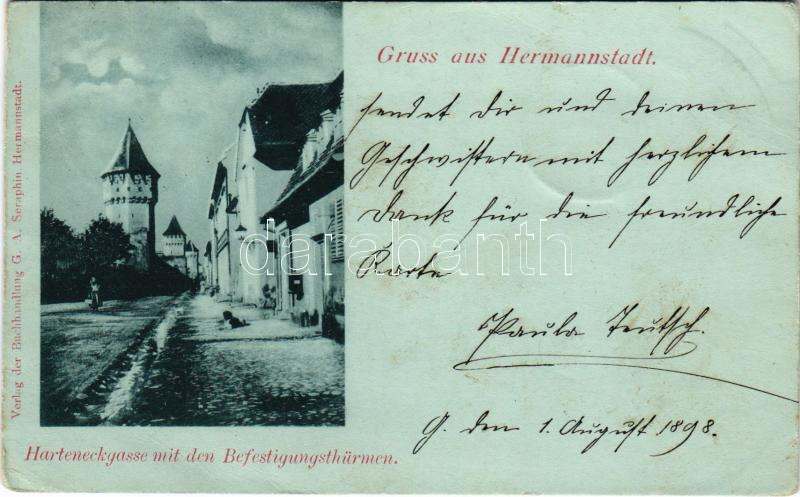 Gruss aus Hermannstadt.
sendet Dir und deinen
Geschwistern mit herzlichem
Dank für die freundliche
Karte
Paula Teutsch.
G. den 1. August 1898.
Harteneckgasse mit den Befestigungsthürmen.
Verlag der Buchhandlung G. A. Seraphin, Hermannstadt.
darabanth